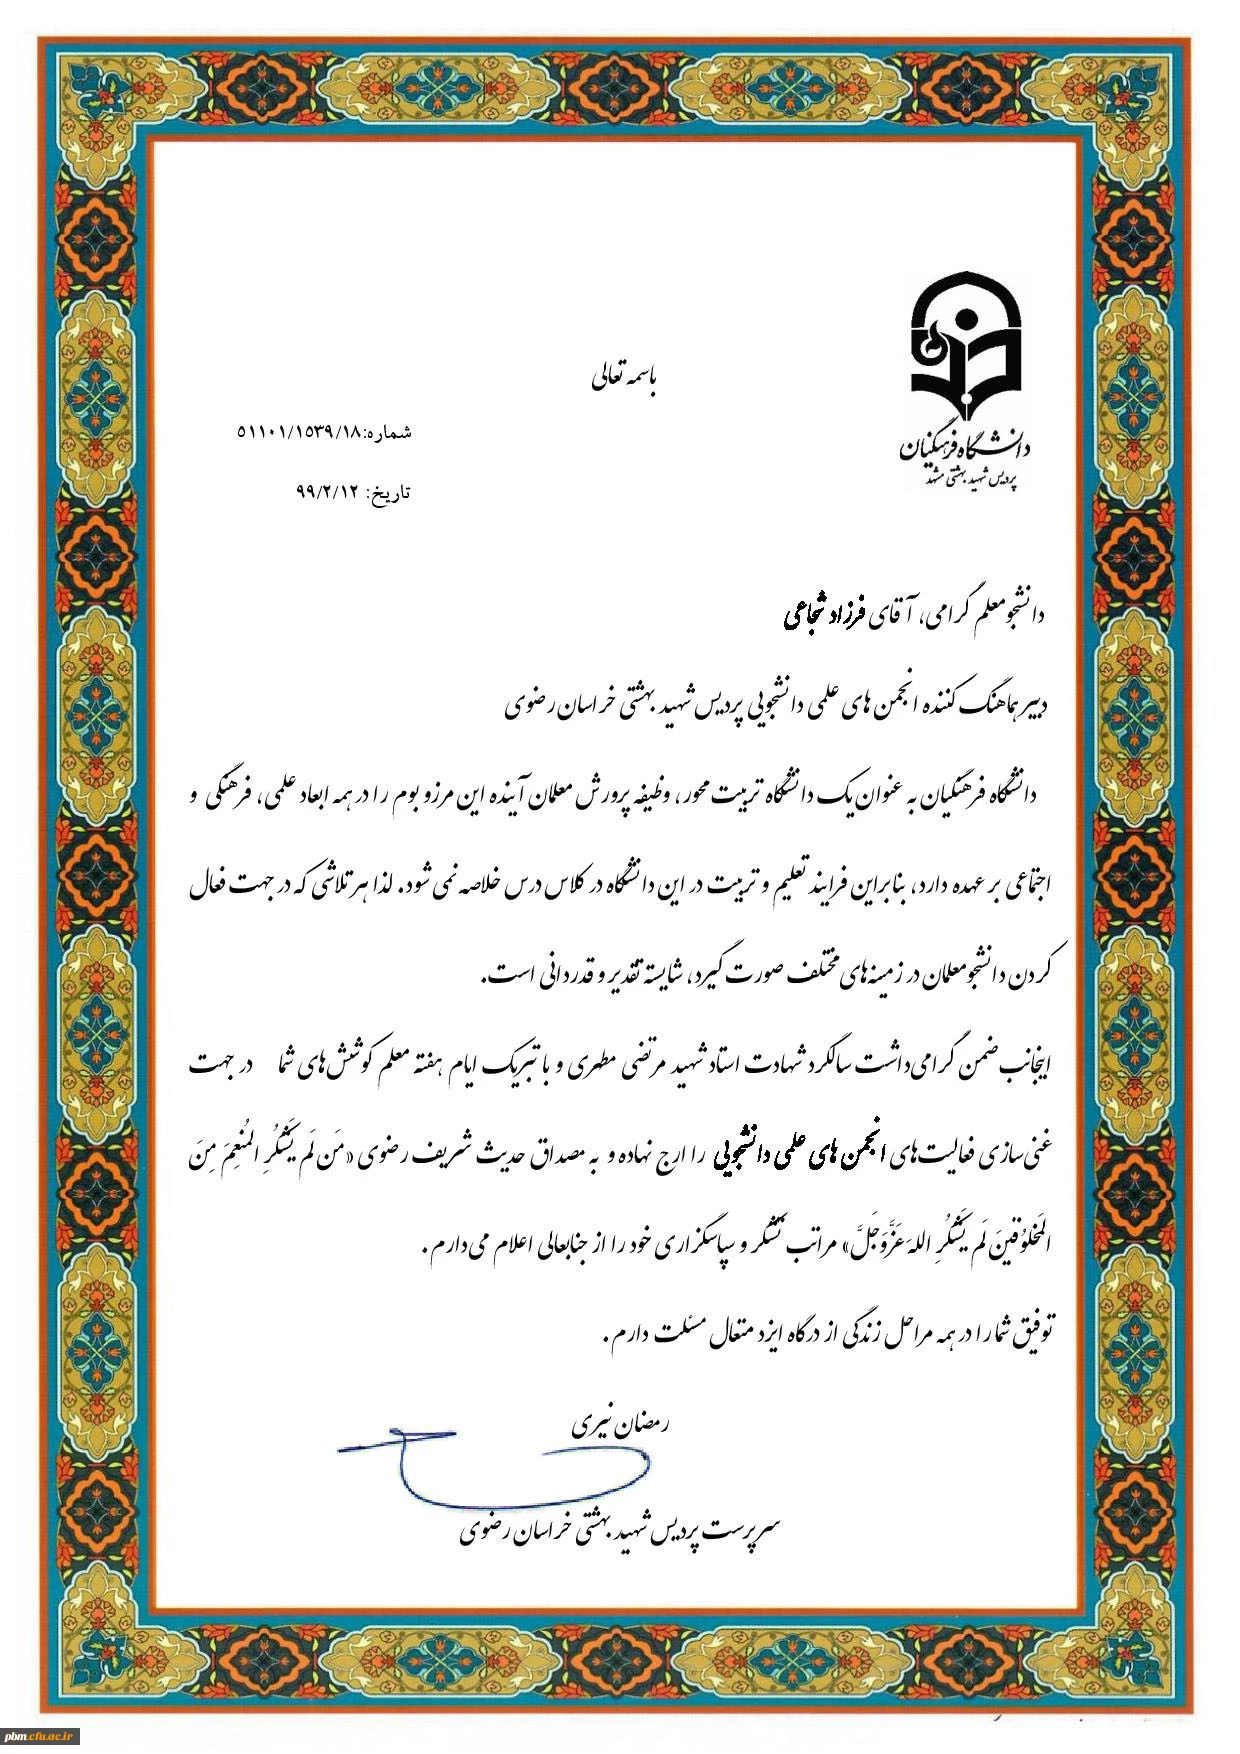 باسمه تعالی
دانشگاه فرهنگیان
پردیس شهید بهشتی مشهد
شماره:۵۱۱۰۱/۱۵۳۹/۱۸
تاریخ: ۹۹/۲/۱۲
دانشجو معلم گرامی، آقای فرزاد شجاعی
دبیر هماهنگ کننده انجمن های علمی دانشجویی پردیس شهید بهشتی خراسان رضوی
دانشگاه فرهنگیان به عنوان یک دانشگاه تربیت محور، وظیفه پرورش معلمان آینده این مرز و بوم را در همه ابعاد علمی، فرهنگی و
اجتماعی بر عهده دارد، بنابراین فرایند تعلیم و تربیت در این دانشگاه در کلاس درس خلاصه نمی شود. لذا هر تلاشی که در جهت فعال
کردن دانشجومعلمان در زمینه‌های مختلف صورت گیرد، شایسته تقدیر و قدردانی است.
اینجانب ضمن گرامی‌داشت سالگرد شهادت استاد شهید مرتضی مطهری و با تبریک ایام هفته معلم کوشش‌های شما در جهت
غنی‌سازی فعالیت‌های انجمن های علمی دانشجویی را ارج نهاده و به مصداق حدیث شریف رضوی «مَن لَم یَشکُرِ المُنعِمَ مِنَ
المَخلوُقینَ لَم یَشکُرِ اللهَ عَزَّوَجَلَّ» مراتب تشکر و سپاسگزاری خود را از جنابعالی اعلام می‌دارم.
توفیق شما را در همه مراحل زندگی از درگاه ایزد متعال مسئلت دارم.
رمضان نیری
سرپرست پردیس شهید بهشتی خراسان رضوی
pbm.cfu.ac.ir